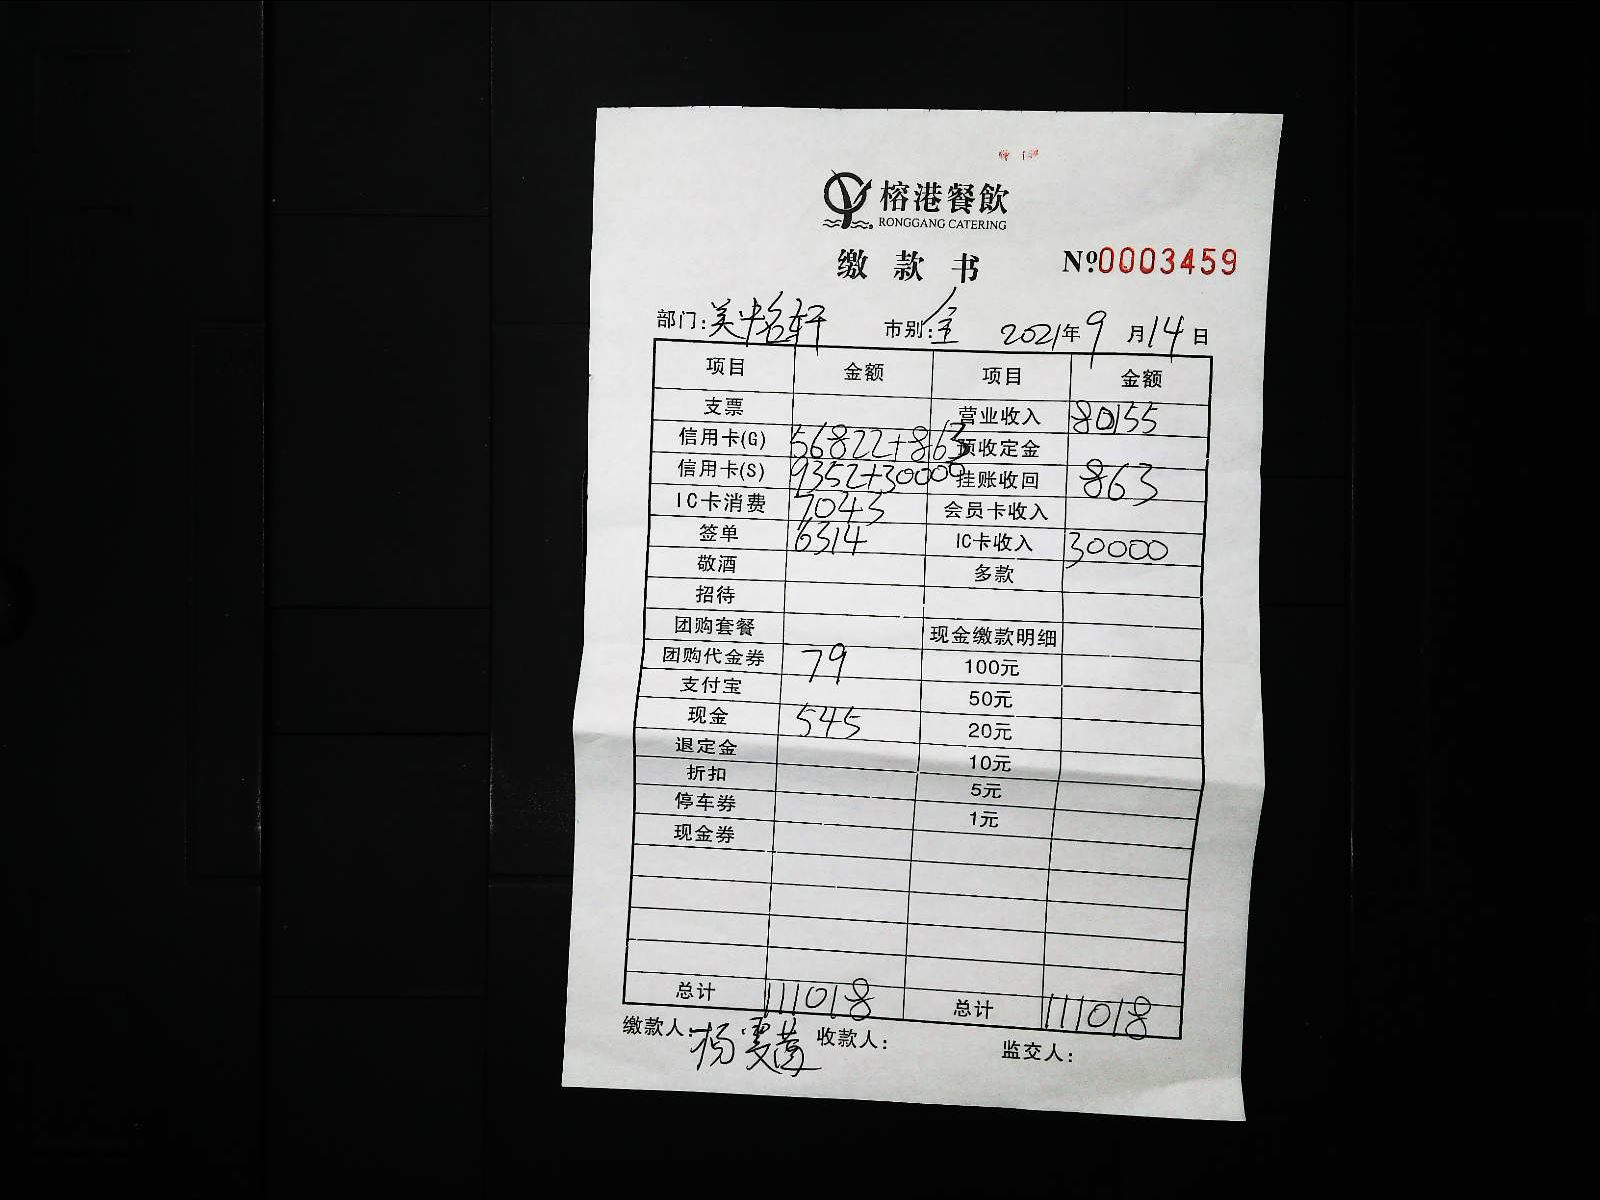 榕港餐飲
RONGGANG CATERING
缴款书 Nº 0003459
部门: 美中茗轩 市别: 全 2021年9月14日
项目 金额 项目 金额
支票 营业收入 80155
信用卡(G) 56822+863 预收定金
信用卡(S) 9352+30000 挂账收回 863
IC卡消费 7043 会员卡收入
签单 6314 IC卡收入 30000
敬酒 多款
招待
团购套餐 现金缴款明细
团购代金券 79 100元
支付宝 50元
现金 545 20元
退定金 10元
折扣 5元
停车券 1元
现金券
总计 111018 总计 111018
缴款人: 杨 收款人: 监交人: